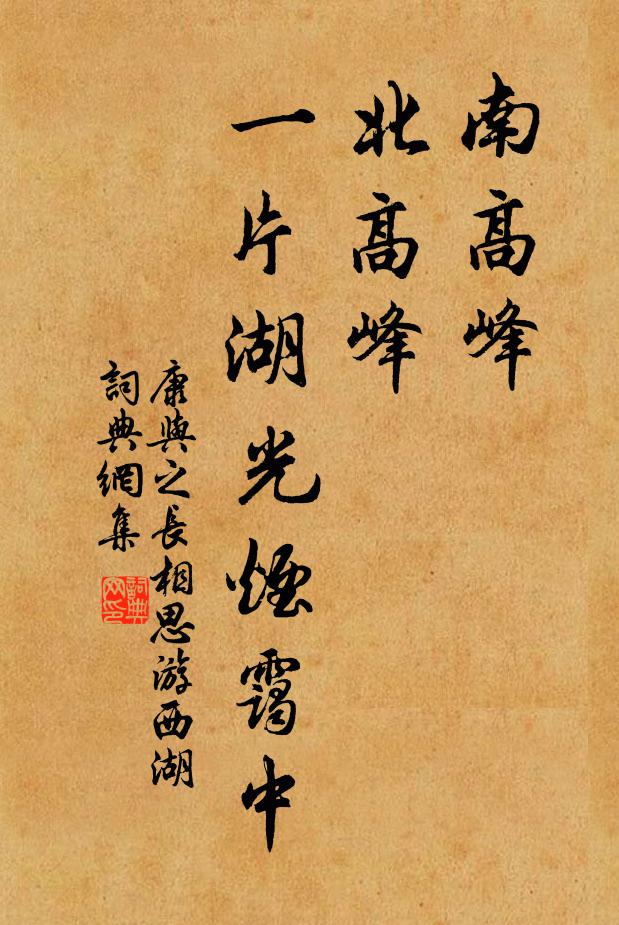 南高峰
北高峰
一片湖光煙靄中
康與之長相思游西湖
詞典網集
詞典
网印